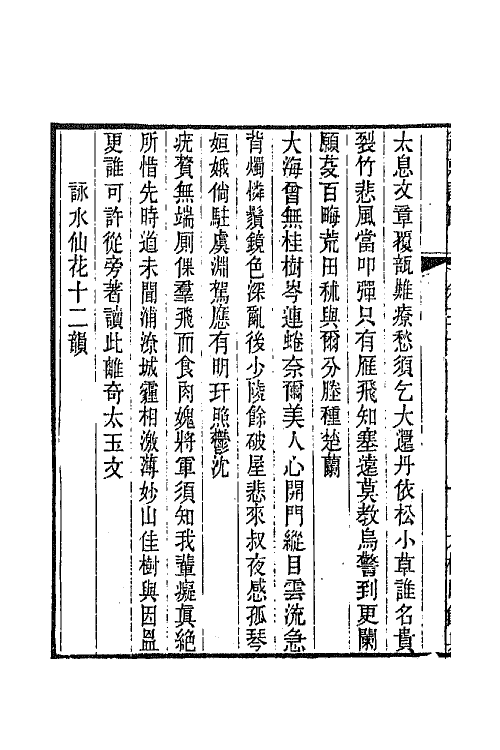 太息文章覆瓿難療愁須乞大還丹依松小草誰名貴
裂竹悲風當叩彈只有雁飛知塞遠莫教烏警到更闌
願芟百畮荒田秫與爾分塍種楚蘭
大海曾無桂樹岑連蜷奈爾美人心開門縱目雲流急
背燭憐鬚鏡色深亂後少陵餘破屋悲來叔夜感孤琴
姮娥倘駐虞淵駕應有明玕照鬱沈
疣贅無端厠倮羣飛而食肉媿將軍須知我輩癡眞絕
所惜先時道未聞浦漵城霾相激薄妙山佳樹與因㬈
更誰可許從旁著讀此離奇太玉文
詠水仙花十二韻